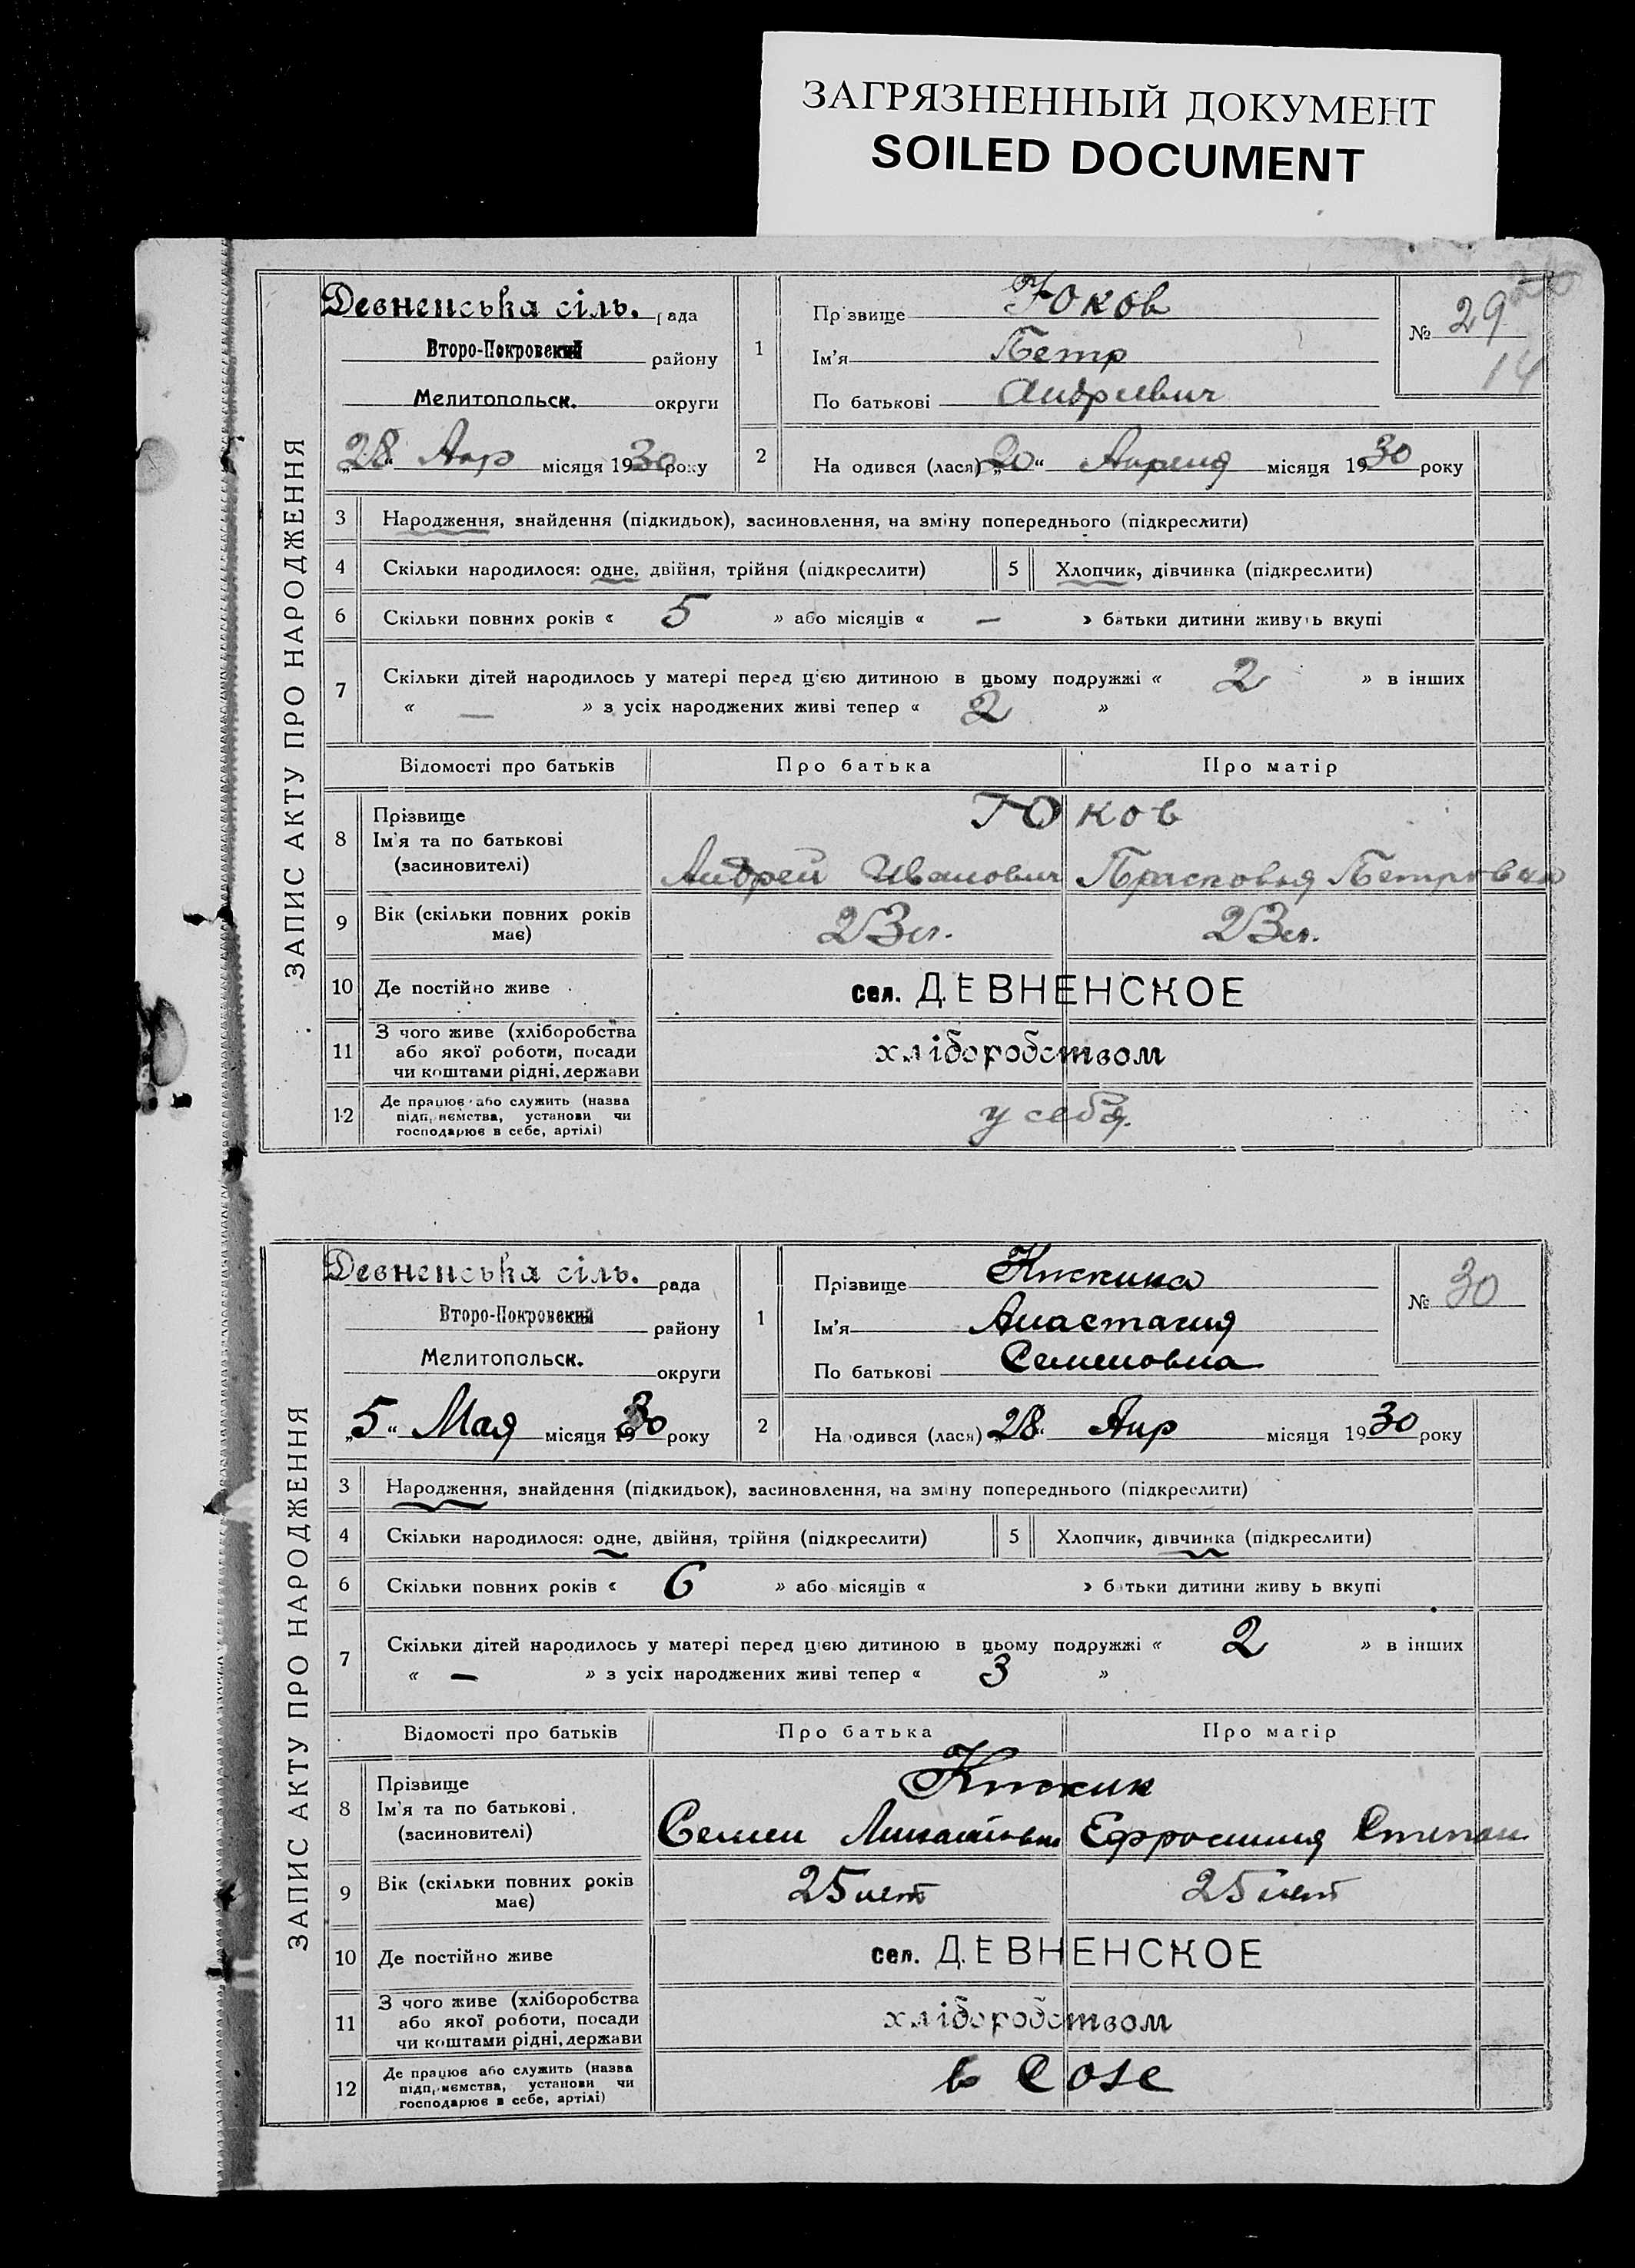 ЗАГРЯЗНЕННЫЙ ДОКУМЕНТ
SOILED DOCUMENT
ЗАПИС АКТУ ПРО НАРОДЖЕННЯ
Девненська сіль. рада
Второ-Покровский району
Мелитопольск. округи
„28“ Апр місяця 1930 року
1
Прізвище Юков
Ім'я Петр
По батькові Андреевич
№ 29
14
2 На одився (лася) „20“ Апреля місяця 1930 року
3 Народження, знайдення (підкидьок), засиновлення, на зміну попереднього (підкреслити)
4 Скільки народилося: одне, двійня, трійня (підкреслити) 5 Хлопчик, дівчинка (підкреслити)
6 Скільки повних років « 5 » або місяців « — » батьки дитини живуть вкупі
7 Скільки дітей народилось у матері перед цією дитиною в цьому подружжі « 2 » в інших
« — » з усіх народжених живі тепер « 2 »
Відомості про батьків Про батька Про матір
8 Прізвище
Ім'я та по батькові
(засиновителі)
Юков
Андрей Иванович Прасковья Петровна
9 Вік (скільки повних років має) 23 л. 23 л.
10 Де постійно живе сел. ДЕВНЕНСКОЕ
11 З чого живе (хліборобства
або якої роботи, посади
чи коштами рідні, держави
хліборобством
12 Де працює або служить (назва
підпиємства, установи чи
господарює в себе, артілі)
у себя.
ЗАПИС АКТУ ПРО НАРОДЖЕННЯ
Девненська сіль. рада
Второ-Покровский району
Мелитопольск. округи
„5“ Мая місяця 1930 року
1
Прізвище
Ім'я Анастасия
По батькові Семеновна
№ 30
2 На одився (лася) „28“ Апр місяця 1930 року
3 Народження, знайдення (підкидьок), засиновлення, на зміну попереднього (підкреслити)
4 Скільки народилося: одне, двійня, трійня (підкреслити) 5 Хлопчик, дівчинка (підкреслити)
6 Скільки повних років « 6 » або місяців « » батьки дитини живу ь вкупі
7 Скільки дітей народилось у матері перед цією дитиною в цьому подружжі « 2 » в інших
« — » з усіх народжених живі тепер « 3 »
Відомості про батьків Про батька Про матір
8 Прізвище
Ім'я та по батькові
(засиновителі)
Семен Ефросиния Степан
9 Вік (скільки повних років має) 25 лет 25 лет
10 Де постійно живе сел. ДЕВНЕНСКОЕ
11 З чого живе (хліборобства
або якої роботи, посади
чи коштами рідні, держави
хліборобством
12 Де працює або служить (назва
підпиємства, установи чи
господарює в себе, артілі)
в Созе